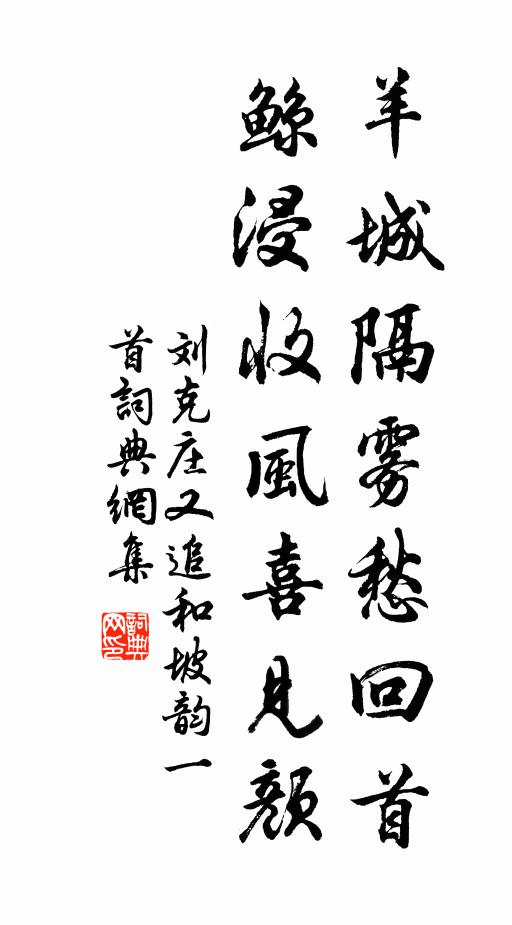 羊城隔雾愁回首
鲸浸收風喜見顔
刘克庄又追和坡韵一
首詞典網集
詞典网印